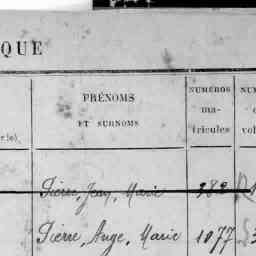 QUE
PRÉNOMS
ET SURNOMS
NUMÉROS
ma-
tricules
Pierre, Jean, Marie 982
Pierre, Ange, Marie 1077